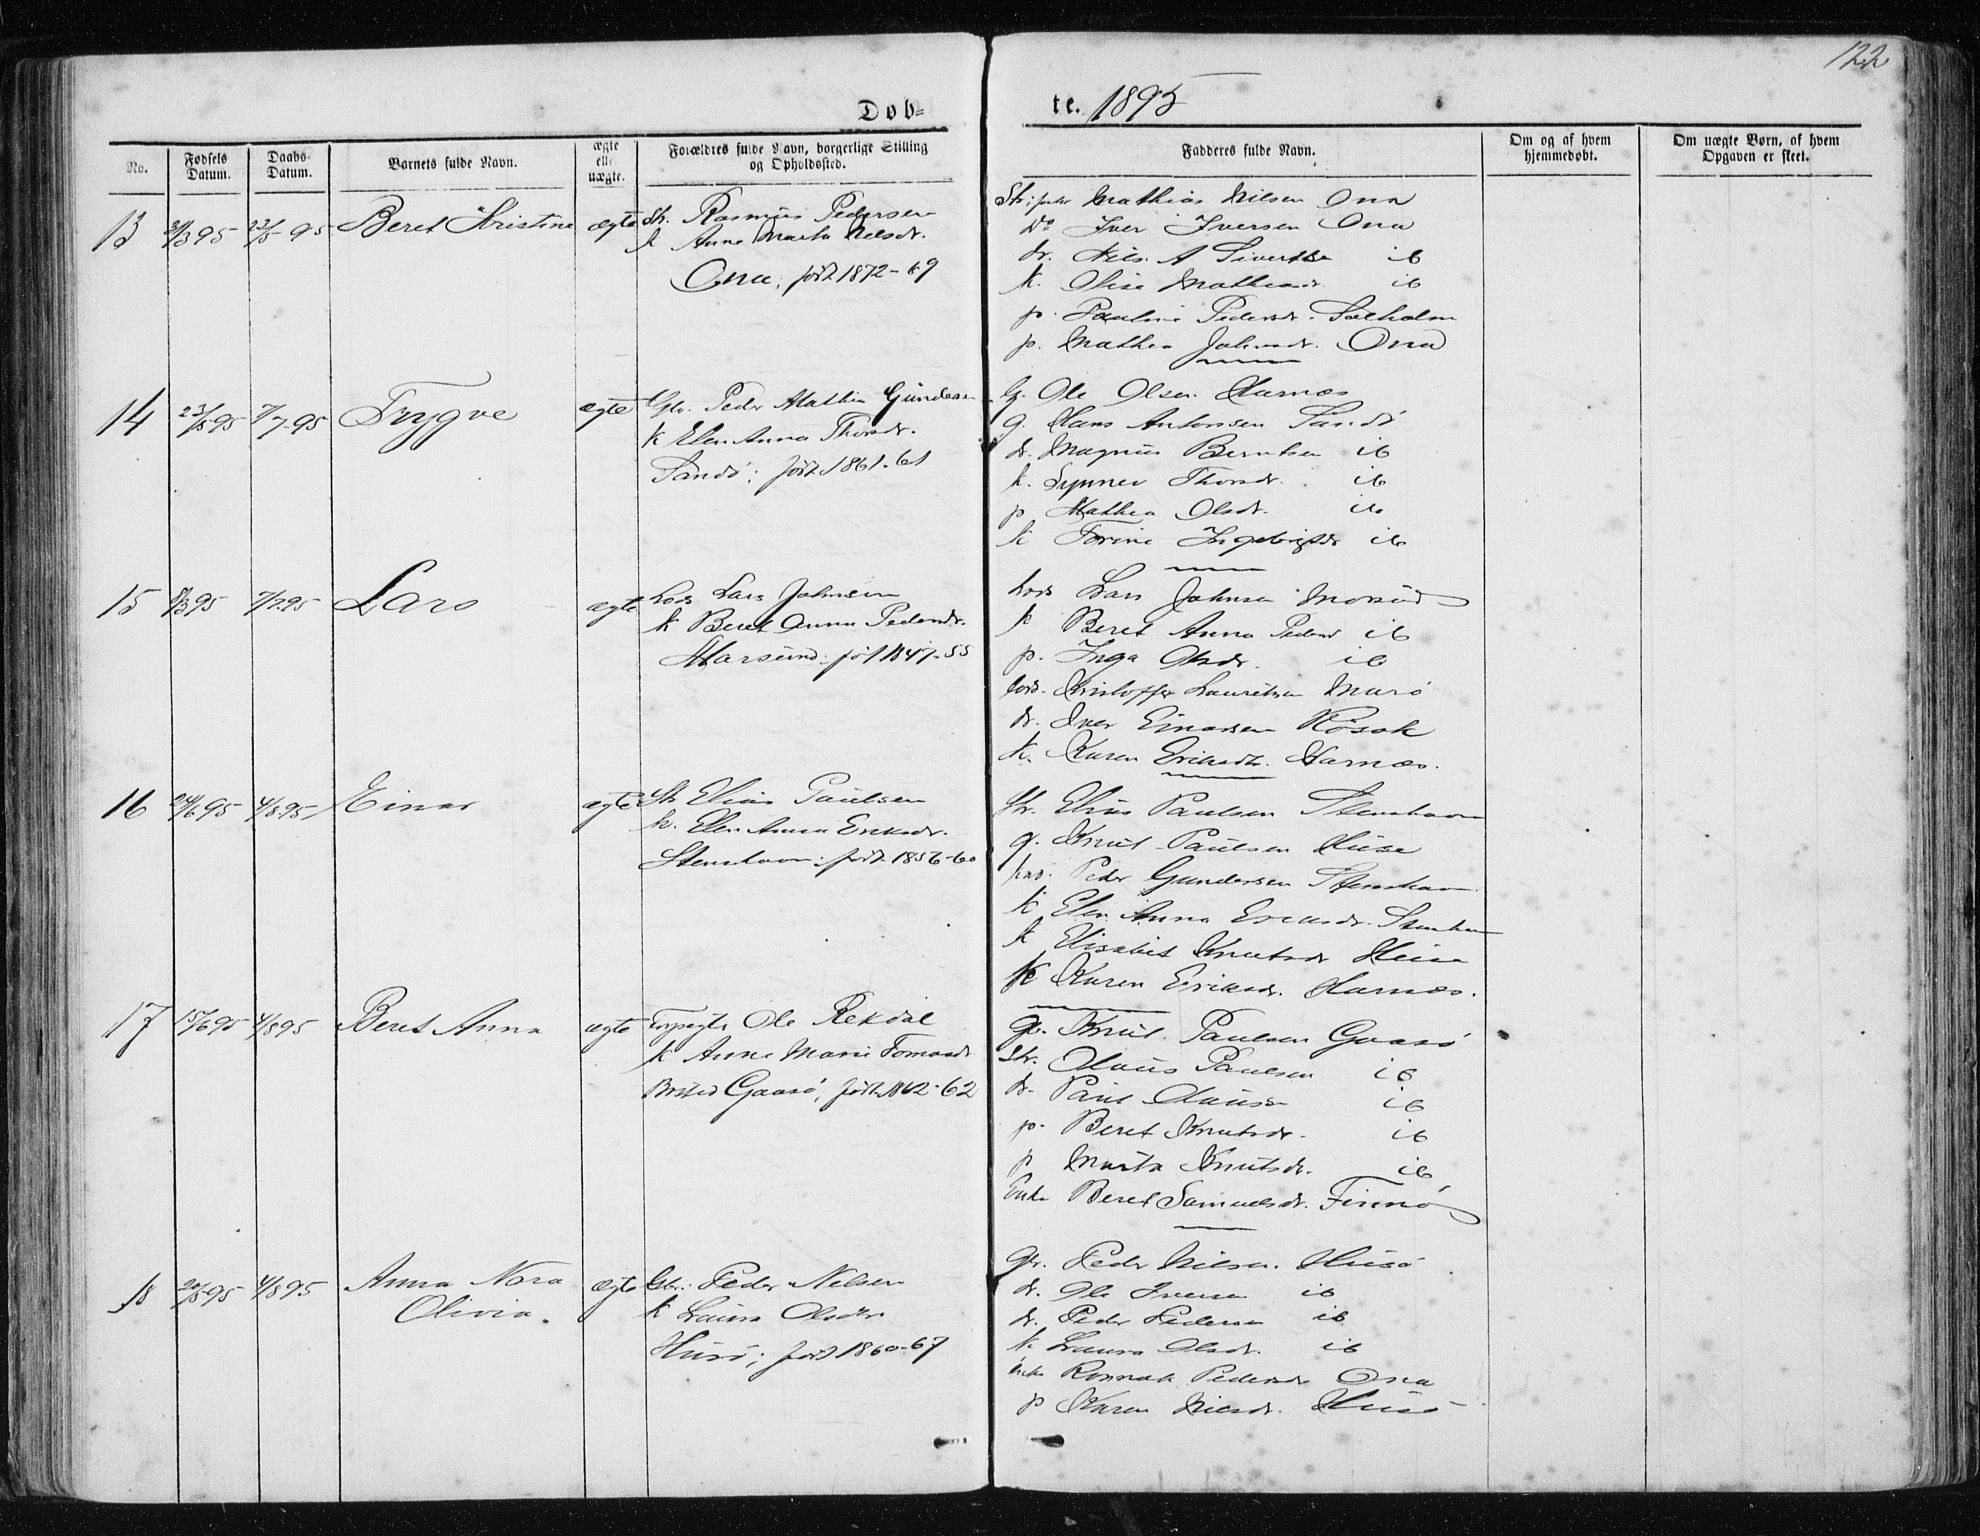 122
Døb-
te. 1895
No.
Fødsels Datum.
Daabs- Datum.
Barnets fulde Navn.
ægte eller uægte.
Forældres fulde Navn, borgerlige Stilling og Opholdssted.
Fadderes fulde Navn.
Om og af hvem hjemmedøbt.
Om uægte Børn, af hvem Opgaven er skeet.
13 95 23/5 95 Beret Kristine ægte Str. Rasmus Pedersen
k Anne Marta Nilsdr.
Ona; født 1872-69
Mathias Nilsen Ona
Do Iver Iversen Ona
dr. Nils A Sivertsen ib
k. Olise Mathiasdr ib
p. Pauline Pedersdr. Sætholm
p. Mathea Johnsdr. Ona
14 23/5 95 7/7 95 Trygve ægte Gbr. Peder Mathias Gundersen
k Elen Anna Thorsdr.
Sandø; født 1861-61
G. Ole Olsen Harnæs
g. Hans Antonsen Sandø
dr. Magnus Berntsen ib
k. Synnev Thorsdr. ib
p Mathea Olsdr. ib
k Torine Ingebrigtsdr ib
15 8/3 95 7/7 95 Lars ægte Lods Lars Johnsen
k Beret Anna Pedersdr.
Marsund; født 1847-55
Lods Lars Johnsen Morsund
k Beret Anna Pedersd ib
p. Inga Olsdr. ib
Lods. Kristoffer Lauritsen Marø
dr. Iver Einarsen Røsok
k. Karen Eriksdtr. Harnæs.
16 24/6 95 4/8 95 Einar ægte Str Elias Paulsen
k. Elen Anna Eriksdr.
Stenshavn; født 1856-60
Str. Elias Paulsen Stenshavn
g. Knut Paulsen Huse
Peder Gundersen Stenshavn
k Elen Anna Eriksdr. Stenshavn
k Elisabet Knutsdr Huse
k Karen Eriksdr. Harnæs.
17 15/6 95 4/8 95 Beret Anna ægte Forpagter Ole Rekdal
k Anne Marie Tomasdr
Bosted Gaasø; født 1862-62
Gbr. Knut Paulsen Gaasø
Str. Olaus Paulsen ib
dr. Paul Olausen ib
p. Beret Knutsdr. ib
p Marta Knutsdr. ib
Enke Beret Samuelsdr. Finnø
18 20/5 95 4/8 95 Anna Nora
Olivia. ægte Gbr: Peder Nelsen
k Laura Olsdtr
Husø; født 1860-67
Gbr. Peder Nilsen. Husø
dr. Ole Iversen ib
dr. Peder Pedersen ib
k Laura Olsdr. ib
Enke Ronnah Pedersdr Ona
p Karen Nilsdr. Husø